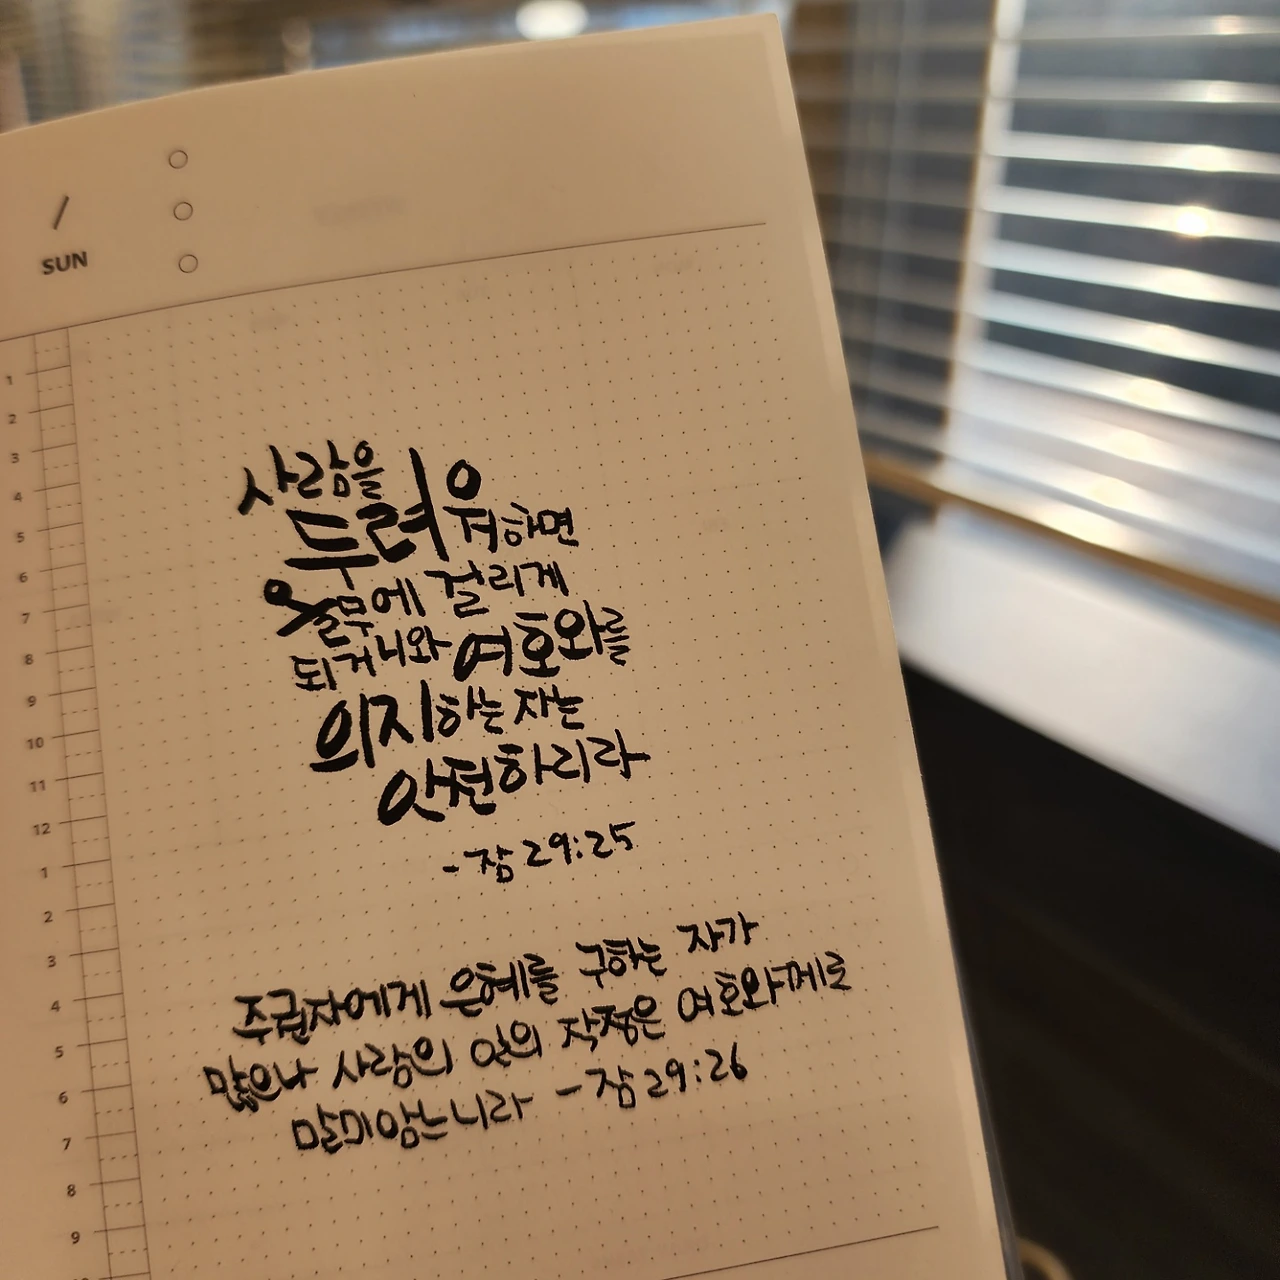 /
SUN
1
2
3
4
5
6
7
8
9
10
11
12
1
2
3
4
5
6
7
8
9
사람을
두려워하면
올무에 걸리게
되거니와 여호와를
의지하는 자는
안전하리라
-잠 29:25
주권자에게 은혜를 구하는 자가
많으나 사람의 일의 작정은 여호와께로
말미암느니라 -잠 29:26